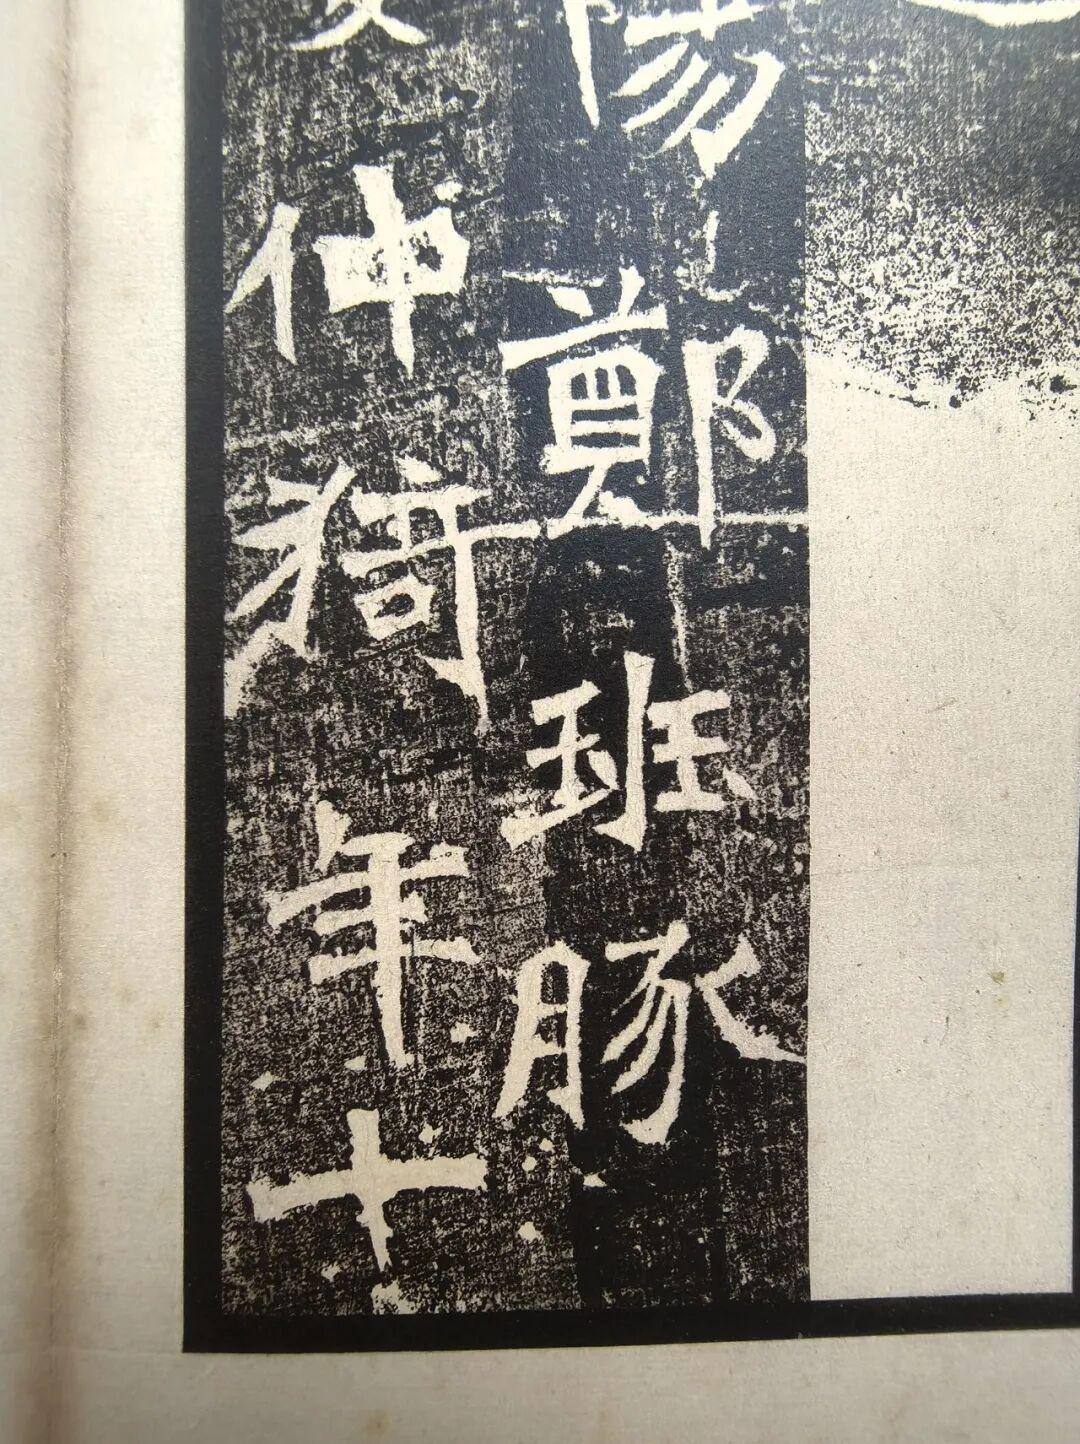 陽鄭班豚
仲猗年十